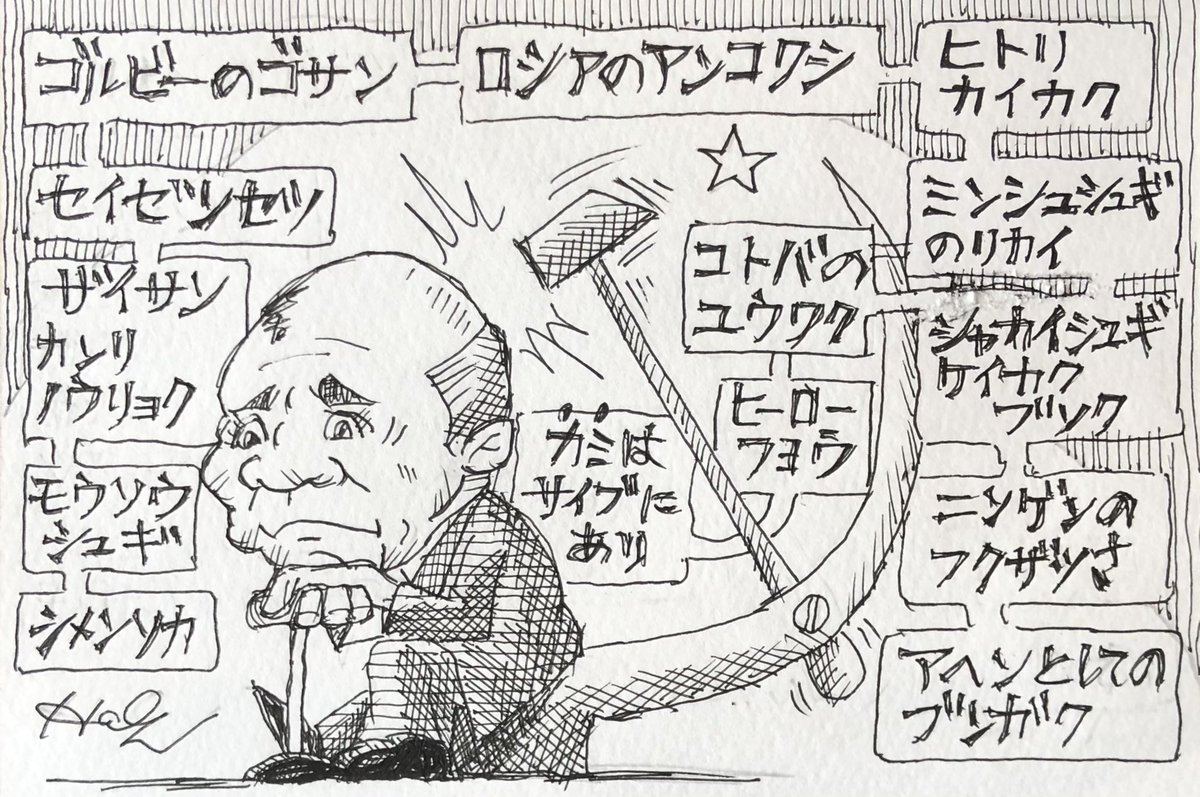 ゴルビーのゴサン
ロシアのアンコワシ
ヒトリ
カイカク
セイゼツゼツ
ミンシュシュギ
のリカイ
コトバの
ユウワク
ザイサン
カンリ
ノウリョク
シャカイシュギ
ケイカク
ブソク
ヒーロー
フヨウ
カミは
サイブに
あり
モウソウ
シュギ
ニンゲンの
フクザツさ
シメンソカ
アヘンとしての
ブンガク